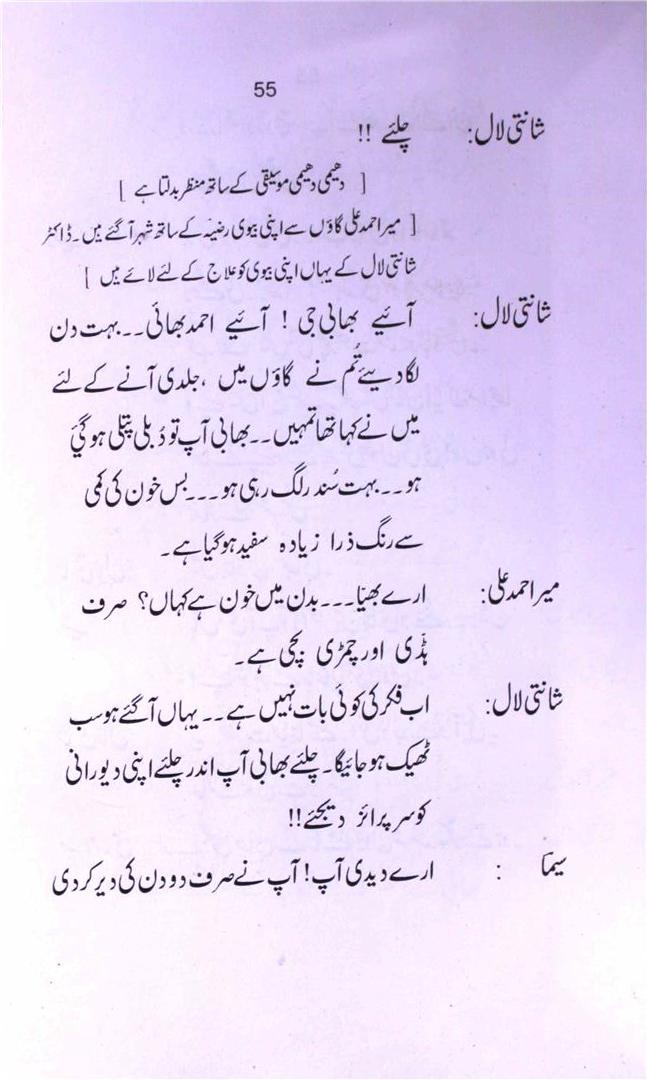 55
شانتی لال: چلئے !!
[ دھیمی دھیمی موسیقی کے ساتھ منظر بدلتا ہے ]
[ میر احمد علی گاؤں سے اپنی بیوی رضیہ کے ساتھ شہر آگئے میں۔ ڈاکٹر
شانتی لال کے یہاں اپنی بیوی کو علاج کے لئے لائے میں ]
شانتی لال: آئیے بھابی جی ! آئیے احمد بھائی۔۔ بہت دن
لگا دیئے تُم نے گاؤں میں ، جلدی آنے کے لئے
میں نے کہا تھا تمہیں۔۔ بھابی آپ تو دُبلی پتلی ہو گئی
ہو۔۔ بہت سُندر لگ رہی ہو۔۔۔ بس خون کی کمی
سے رنگ ذرا زیادہ سفید ہو گیا ہے۔
میر احمد علی: ارے بھیّا۔۔۔ بدن میں خون ہے کہاں؟ صرف
ہڈّی اور چمڑی بچی ہے۔
شانتی لال: اب فکر کی کوئی بات نہیں ہے۔۔ یہاں آگئے ہو سب
ٹھیک ہو جائیگا۔ چلئے بھابی آپ اندر چلئے اپنی دیورانی
کو سرپرائز دیجئے !!
سیما : ارے دیدی آپ! آپ نے صرف دو دن کی دیر کر دی